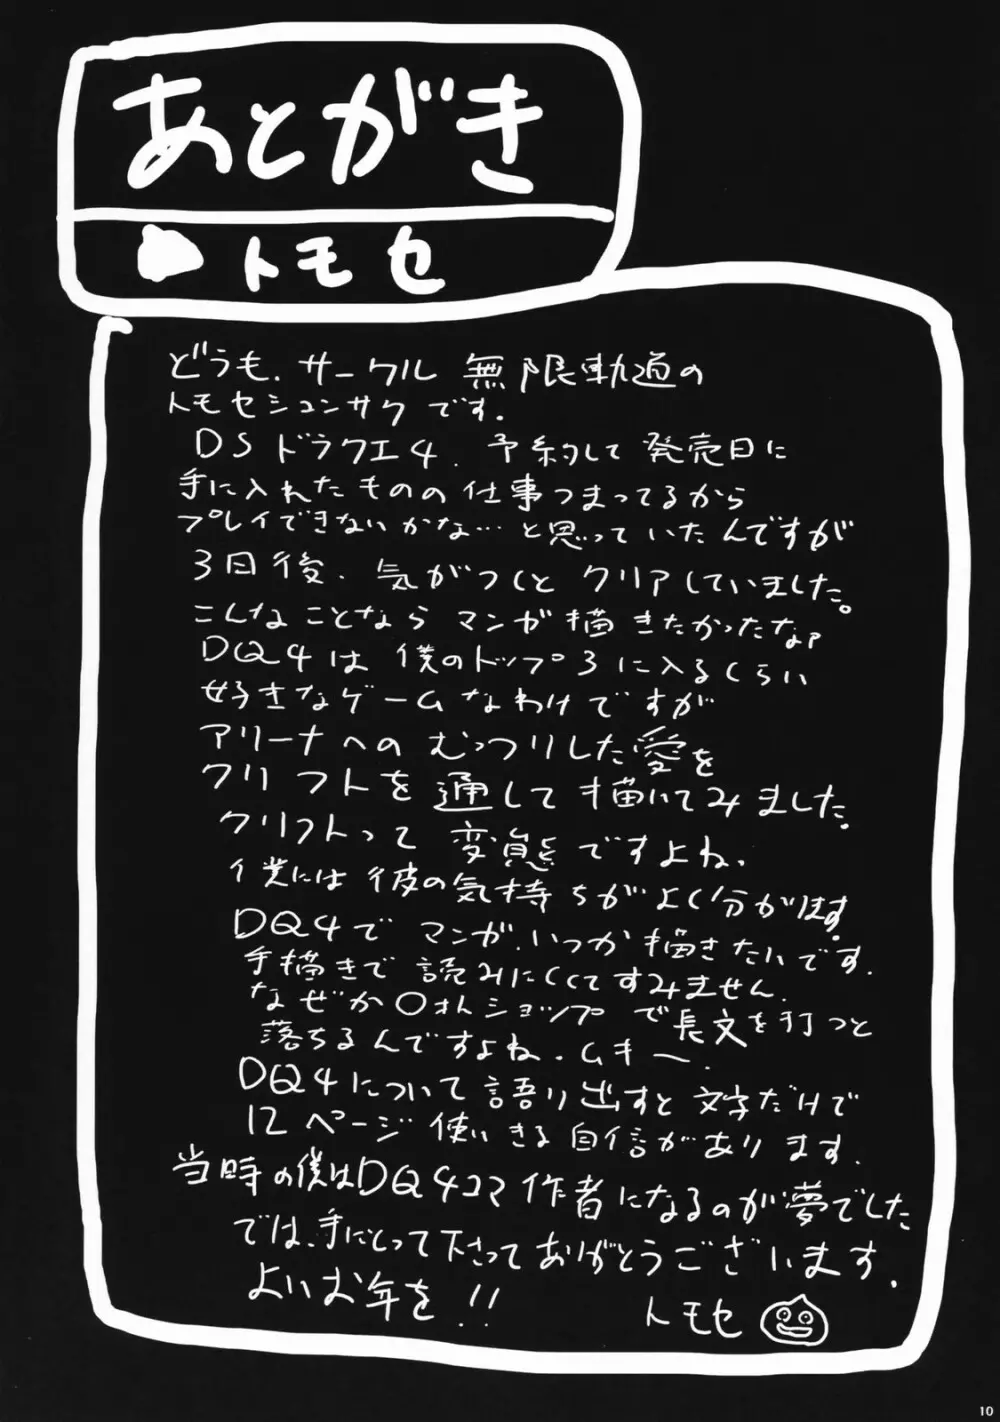 あとがき
トモセ
どうも、サークル 無限軌道の
トモセシュンサクです.
DSドラクエ4. 予約して発売日に
手に入れたものの仕事つまってるから
プレイできないかな…と思っていたんですが
3日後、気がつくとクリアしていました。
こんなことならマンガ描きたかったなァ
DQ4は僕のトップ3に入るくらい
好きなゲームなわけですが
アリーナへのむっつりした愛を
クリフトを通して描いてみました.
クリフトって変態ですよね.
僕には彼の気持ちがよく分かります.
DQ4でマンガ、いつか描きたいです.
手描きで読みにくくてすみません.
なぜか〇ォトショップで長文を打つと
落ちるんですよね.ムキー.
DQ4について語り出すと文字だけで
12ページ使いきる自信があります.
当時の僕はDQ4コマ作者になるのが夢でした
では、手にとって下さってありがとうございます.
よいお年を!!
トモセ
10